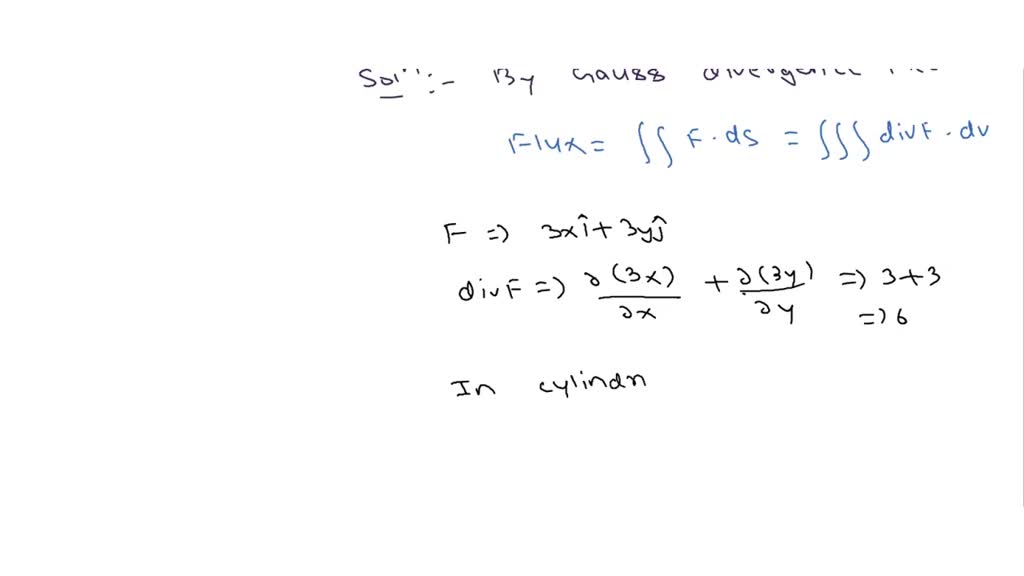 Solⁿ:- By Gauss divergence
Flux = ∫∫ F · ds = ∫∫∫ divF · dv
F => 3xî + 3yĵ
divF => ∂(3x)/∂x + ∂(3y)/∂y => 3+3
=> 6
In cylindr